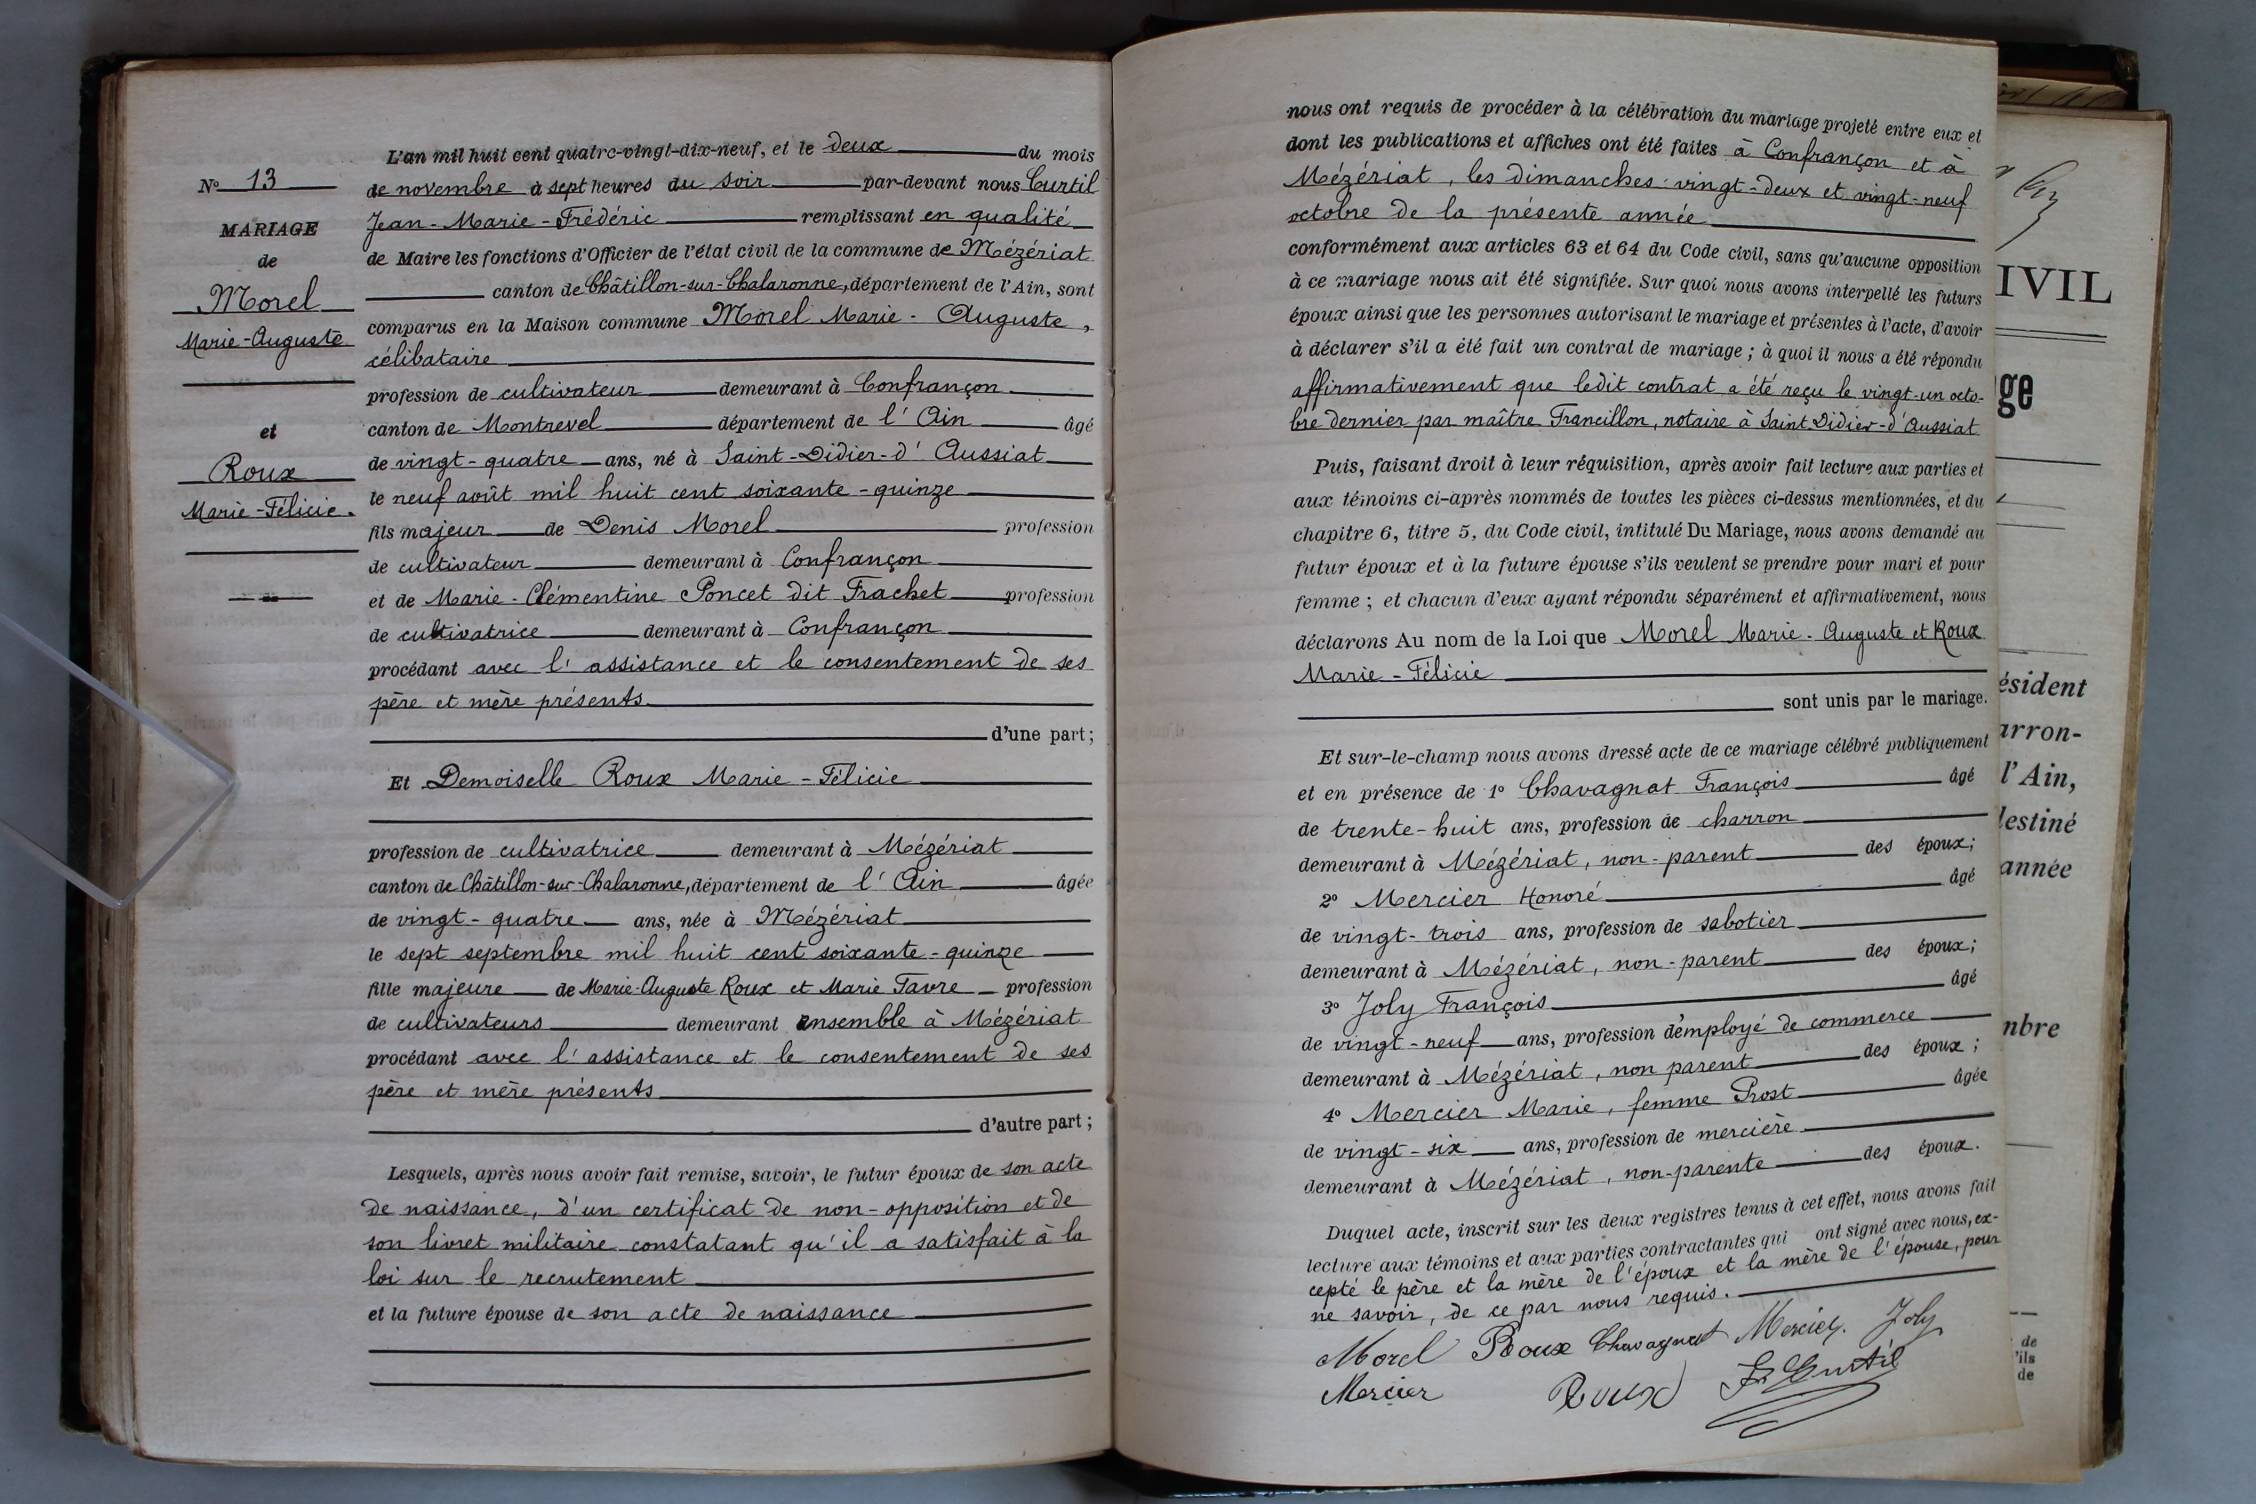 N° 13
MARIAGE
de
Morel
Marie-Auguste
et
Roux
Marie-Félicie.
L'an mil huit cent quatre-vingt-dix-neuf, et le deux du mois
de novembre à sept heures du soir par-devant nous Curtil
Jean-Marie-Frédéric remplissant en qualité
de Maire les fonctions d'Officier de l'état civil de la commune de Mézériat
canton de Châtillon-sur-Chalaronne, département de l'Ain, sont
comparus en la Maison commune Morel Marie-Auguste,
célibataire
profession de cultivateur demeurant à Confrançon
canton de Montrevel département de l'Ain âgé
de vingt-quatre ans, né à Saint-Didier-d'Aussiat
le neuf août mil huit cent soixante-quinze
fils majeur de Denis Morel profession
de cultivateur demeurant à Confrançon
et de Marie-Clémentine Poncet dit Frachet profession
de cultivatrice demeurant à Confrançon
procédant avec l'assistance et le consentement de ses
père et mère présents
d'une part;
Et Demoiselle Roux Marie-Félicie
profession de cultivatrice demeurant à Mézériat
canton de Châtillon-sur-Chalaronne, département de l'Ain âgée
de vingt-quatre ans, née à Mézériat
le sept septembre mil huit cent soixante-quinze
fille majeure de Marie-Auguste Roux et Marie Favre profession
de cultivateurs demeurant ensemble à Mézériat
procédant avec l'assistance et le consentement de ses
père et mère présents
d'autre part;
Lesquels, après nous avoir fait remise, savoir, le futur époux de son acte
de naissance, d'un certificat de non-opposition et de
son livret militaire constatant qu'il a satisfait à la
loi sur le recrutement
et la future épouse de son acte de naissance
nous ont requis de procéder à la célébration du mariage projeté entre eux et
dont les publications et affiches ont été faites à Confrançon et à
Mézériat, les dimanches vingt-deux et vingt-neuf
octobre de la présente année
conformément aux articles 63 et 64 du Code civil, sans qu'aucune opposition
à ce mariage nous ait été signifiée. Sur quoi nous avons interpellé les futurs
époux ainsi que les personnes autorisant le mariage et présentes à l'acte, d'avoir
à déclarer s'il a été fait un contrat de mariage; à quoi il nous a été répondu
affirmativement que ledit contrat a été reçu le vingt-un octo-
bre dernier par maître Francillon, notaire à Saint-Didier-d'Aussiat
Puis, faisant droit à leur réquisition, après avoir fait lecture aux parties et
aux témoins ci-après nommés de toutes les pièces ci-dessus mentionnées, et du
chapitre 6, titre 5, du Code civil, intitulé Du Mariage, nous avons demandé au
futur époux et à la future épouse s'ils veulent se prendre pour mari et pour
femme; et chacun d'eux ayant répondu séparément et affirmativement, nous
déclarons Au nom de la Loi que Morel Marie-Auguste et Roux
Marie-Félicie
sont unis par le mariage.
Et sur-le-champ nous avons dressé acte de ce mariage célébré publiquement
et en présence de 1° Chavagnat François âgé
de trente-huit ans, profession de charron
demeurant à Mézériat, non-parent des époux;
2° Mercier Honoré âgé
de vingt-trois ans, profession de sabotier
demeurant à Mézériat, non-parent des époux;
3° Joly François âgé
de vingt-neuf ans, profession d'employé de commerce
demeurant à Mézériat, non parent des époux;
4° Mercier Marie, femme Prost âgée
de vingt-six ans, profession de mercière
demeurant à Mézériat, non-parente des époux.
Duquel acte, inscrit sur les deux registres tenus à cet effet, nous avons fait
lecture aux témoins et aux parties contractantes qui ont signé avec nous, ex-
cepté le père et la mère de l'époux et la mère de l'épouse, pour
ne savoir, de ce par nous requis.
Morel Roux Chavagnat Mercier. Joly
Mercier Roux Fc Curtil
IVIL
ge
ésident
arron-
l'Ain,
destiné
année
mbre
de
'ils
de